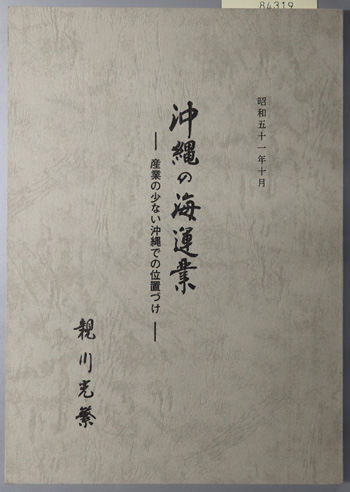 84319
昭和五十一年十月
沖縄の海運業
― 産業の少ない沖縄での位置づけ ―
親川光繁